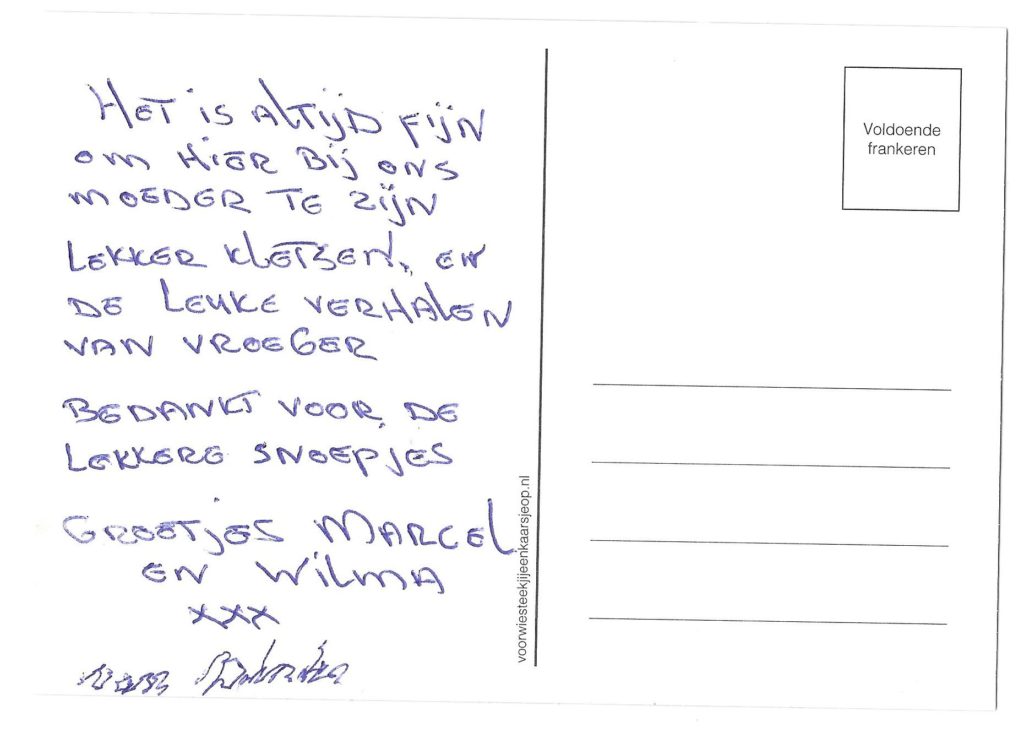 HET is Altijd fijn
om HiER Bij ons
moEDER TE zijn
LEKKER KLETSEN. EN
DE LEUKE VERHALEN
VAN VROEGER
BEDANKT VOOR DE
LEKKERE SNOEPJES
GROETJES MARCEL
EN WilMA
xxx
Voldoende
frankeren
voorwiesteekjijeenkaarsjeop.nl